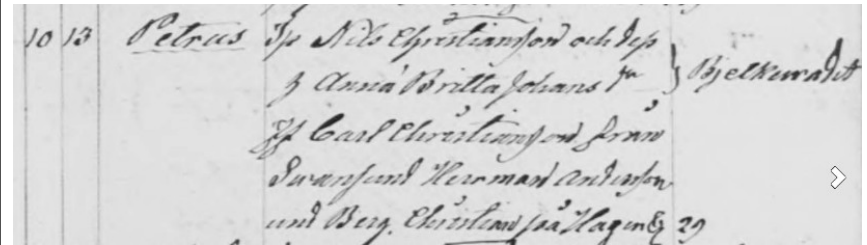 10 13 Petrus Ip Nils Christiansson och dess
h Anna Britta Johans dr } Bjelkeradet
Ff Carl Christiansson från
Swansund Herrman Andersson
und Berg. Christian på Hagen 29